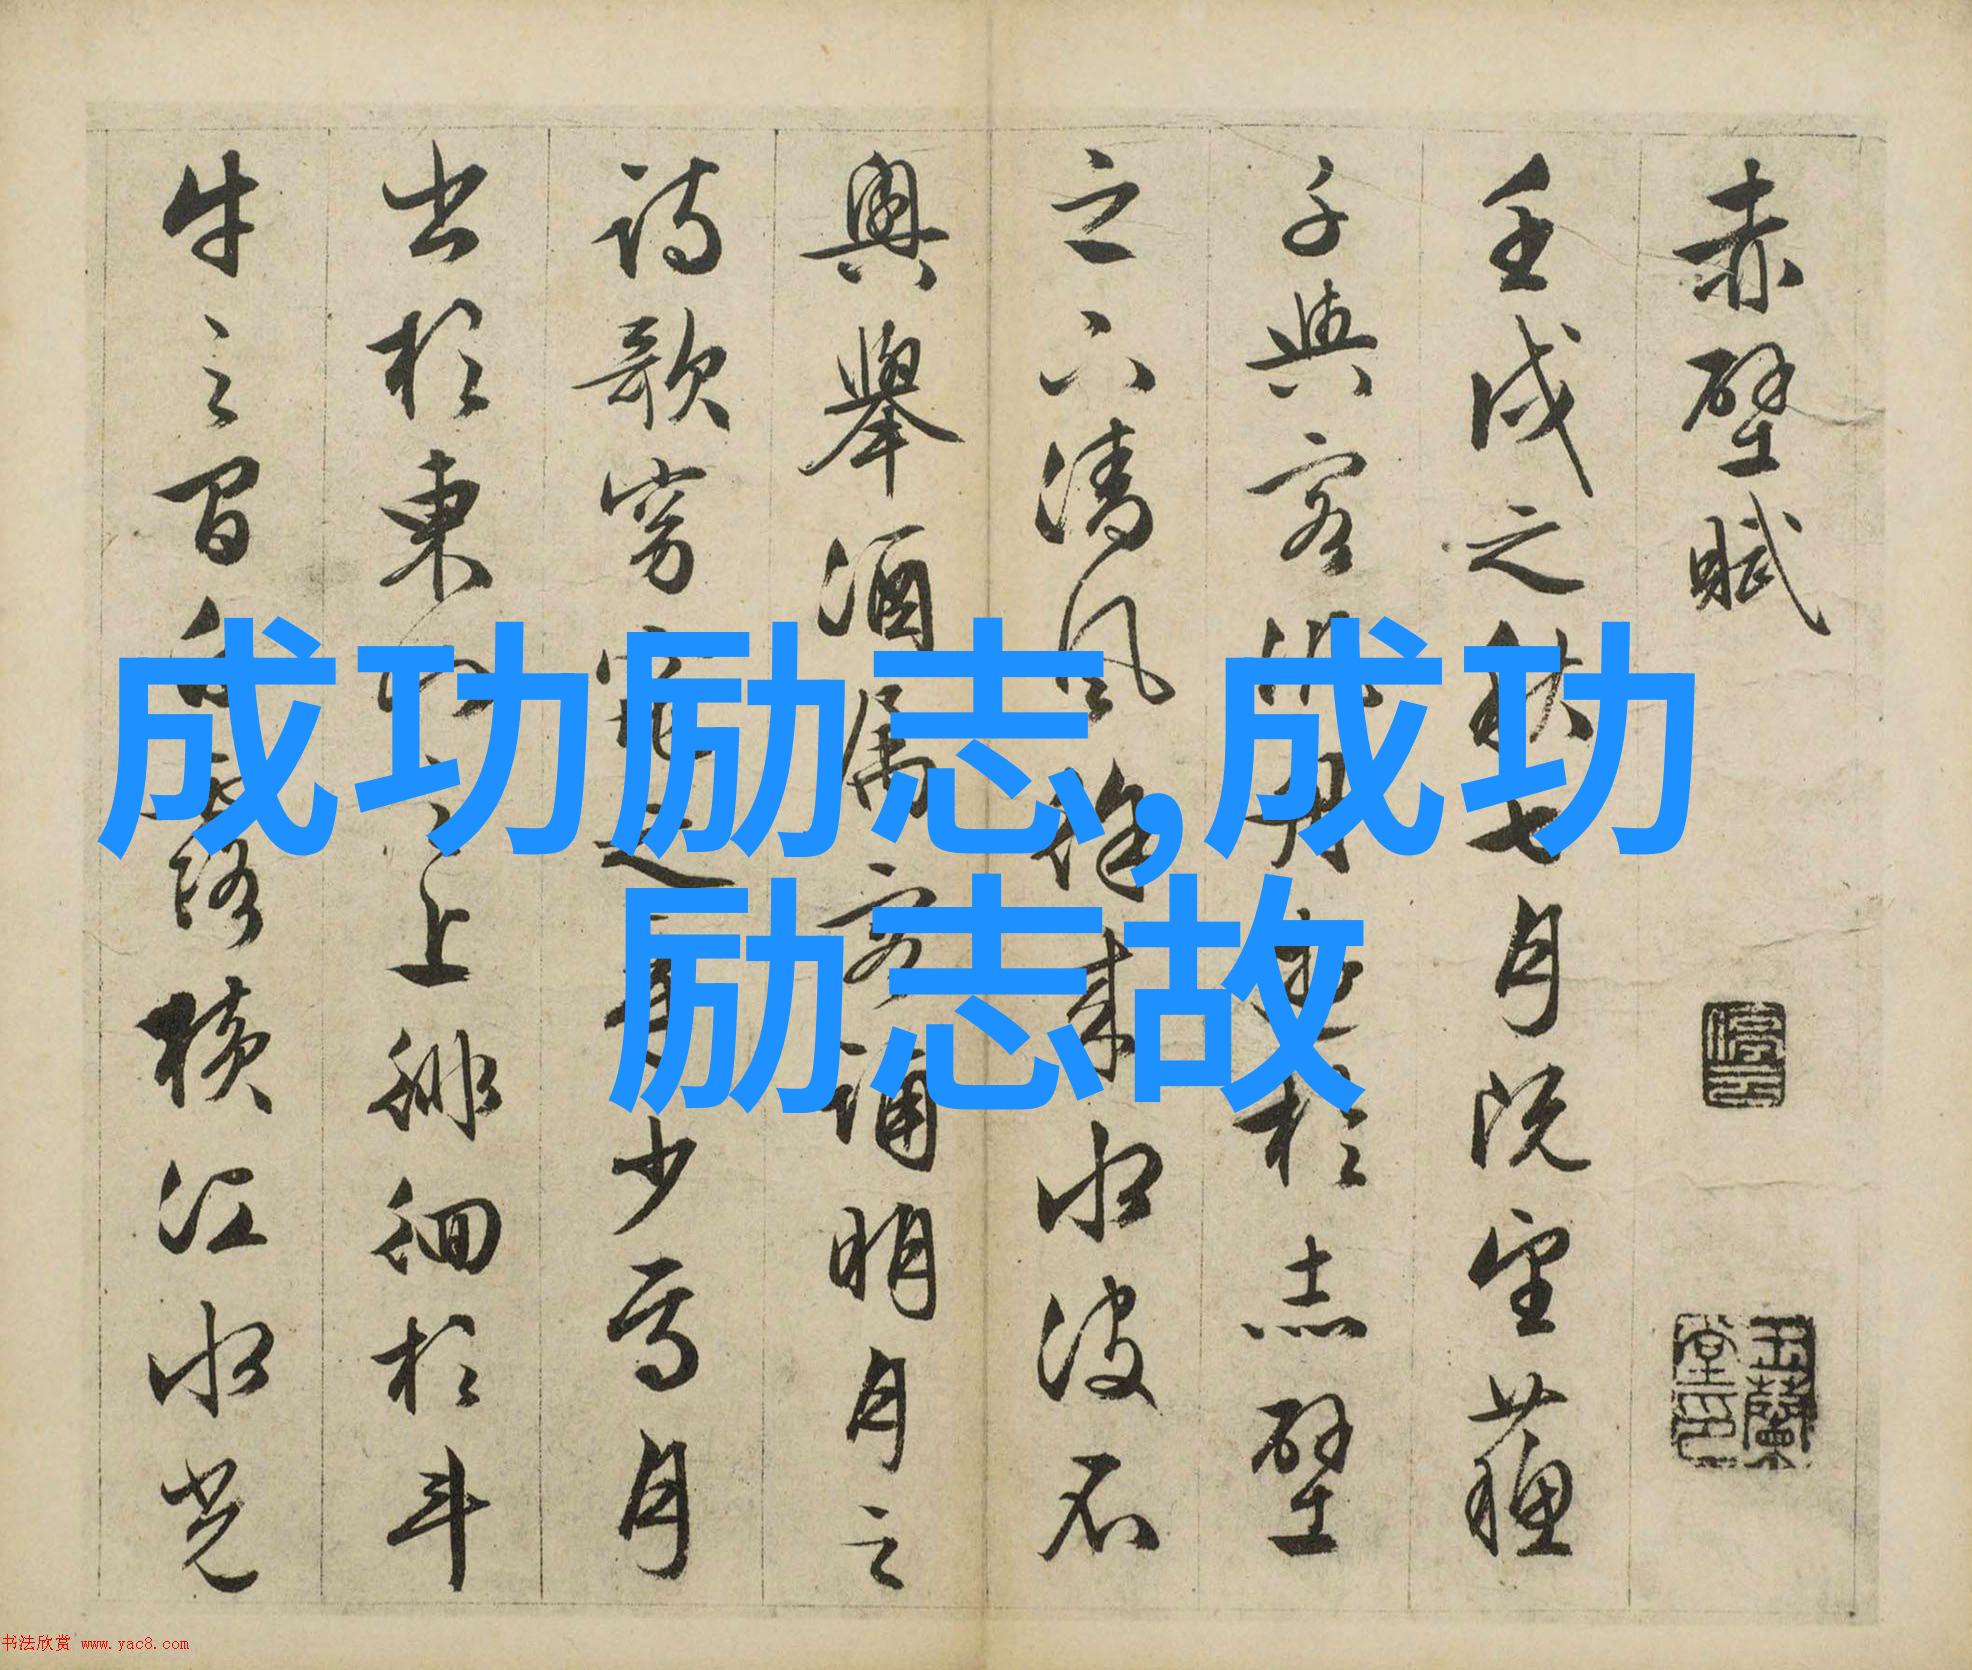 赤壁賦
壬戌之秋七月既望蘇
子與客泛舟遊於赤壁
之下清風徐來水波不
興舉酒屬客誦明月之
詩歌窈窕之章少焉月
出於東山之上徘徊於斗
牛之間白露橫江水光
玉蘭
堂印
成功励志,成功
励志故
书法欣赏 www.yac8.com